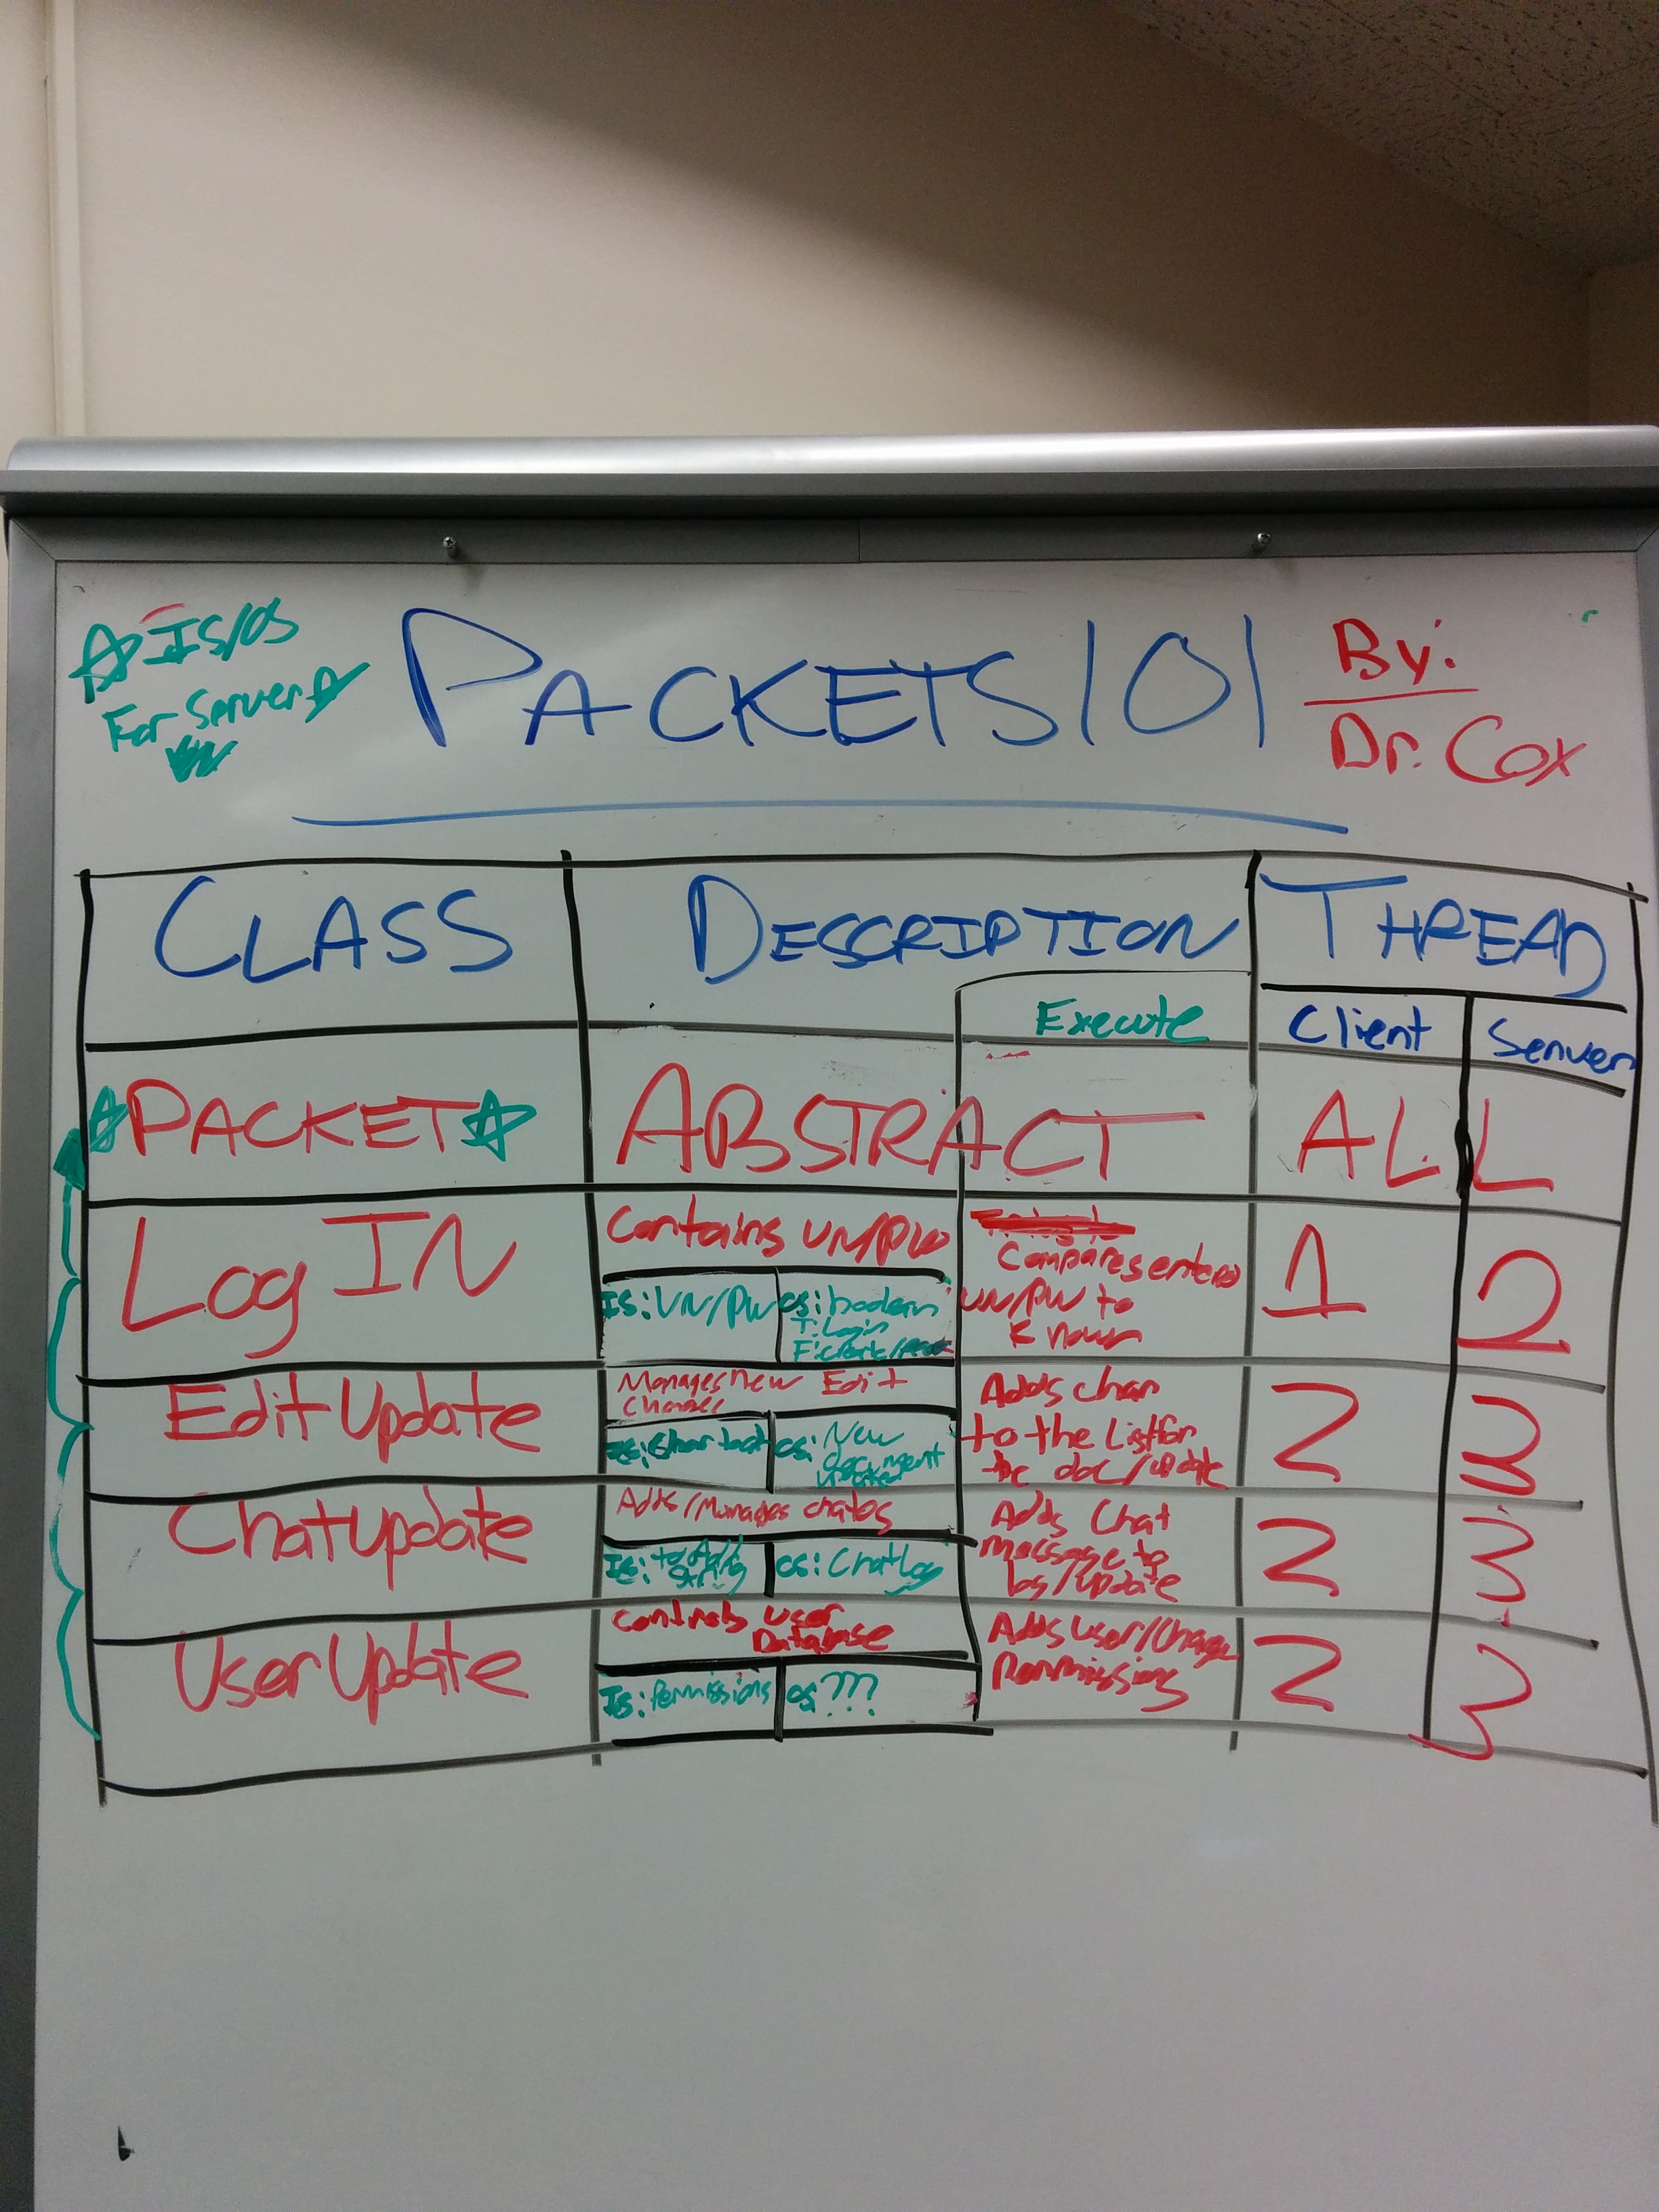 IS/OS
For Server
PACKETS 101
By:
Dr. Cox
CLASS
DESCRIPTION
THREAD
Execute
Client
Server
PACKET
ABSTRACT
ALL
Log IN
Contains UN/PW
IS: UN/PW
OS: boolean
T: Login
Compares entered
UN/PW to
Known
1
2
Edit Update
Manages new Edit
Changes
OS: New
document
Adds char
to the List for
the doc/update
2
3
Chat Update
Adds/Manages chatlog
IS: to Add
String
OS: Chat Log
Adds Chat
message to
log/update
2
3
User Update
Controls User
Database
IS: Permissions
OS ???
Adds User/Change
Permissions
2
3